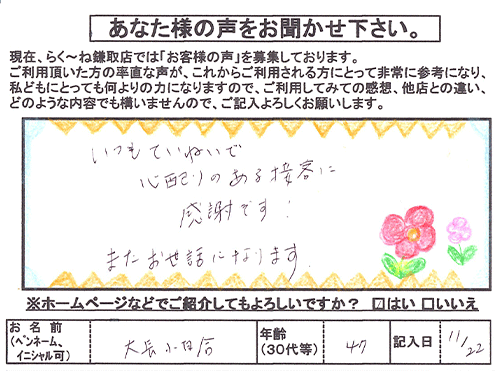 あなた様の声をお聞かせ下さい。
現在、らく～ね鎌取店では「お客様の声」を募集しております。
ご利用頂いた方の率直な声が、これからご利用される方にとって非常に参考になり、
私どもにとっても何よりの力になりますので、ご利用してみての感想、他店との違い、
どのような内容でも構いませんので、ご記入よろしくお願いします。
いつもていねいで
心配りのある接客に
感謝です!
またお世話になります
※ホームページなどでご紹介してもよろしいですか? ☑はい □いいえ
お名前 年齢 47 記入日 11/22
(ペンネーム、 (30代等)
イニシャル可)